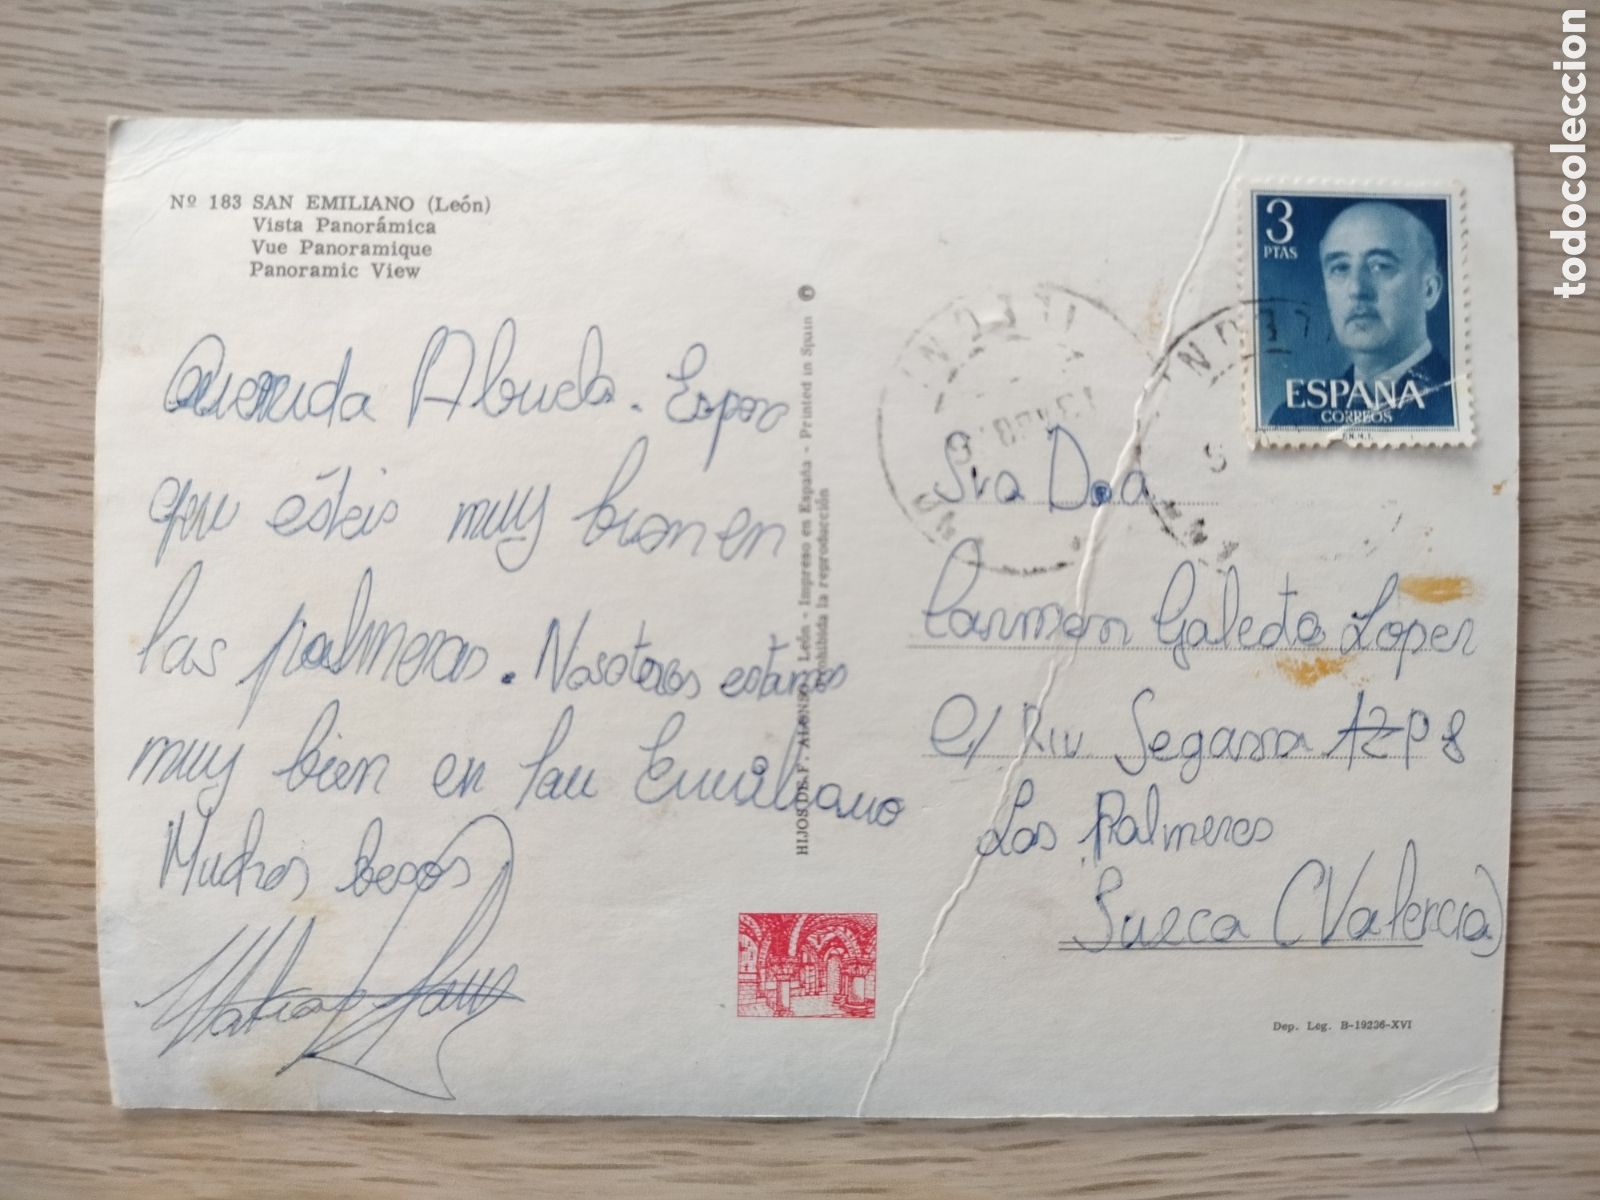 Nº 183 SAN EMILIANO (León)
Vista Panorámica
Vue Panoramique
Panoramic View
Querida Abuela. Espero
que estéis muy bien en
las palmeras. Nosotros estamos
muy bien en San Emiliano
Muchos besos
HIJOS DE F. ALONSO - León - Impreso en España - Printed in Spain ©
Prohibida la reproducción
3
PTAS
ESPAÑA
CORREOS
F.N.M.T.
Sra Doa
Carmen Galedo Loper
C/ Riu Segarra
Las Palmeres
Sueca (Valencia)
Dep. Leg. B-19236-XVI
todocoleccion